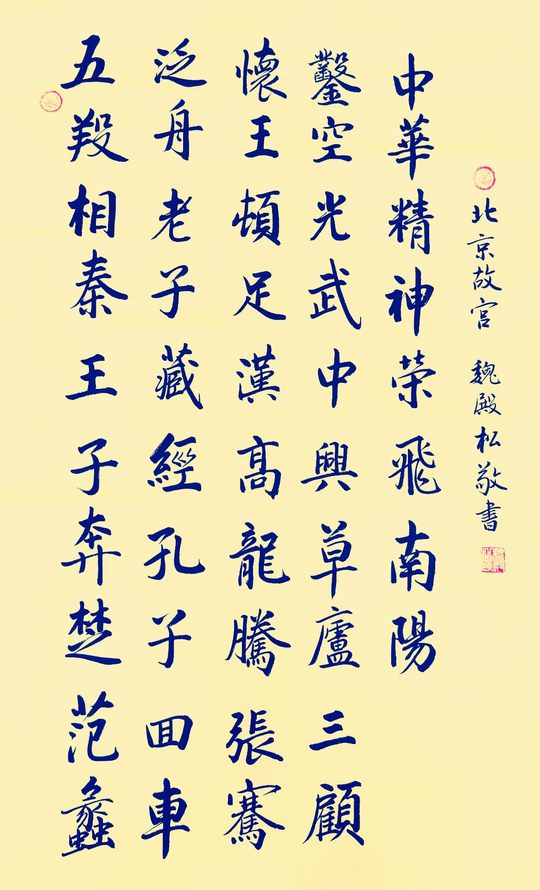 五羖相秦王子奔楚范蠡
泛舟老子藏經孔子囬車
懷王頓足漢高龍騰張騫
鑿空光武中興草廬三顧
中華精神榮飛南陽
北京故宫 魏殿松敬書